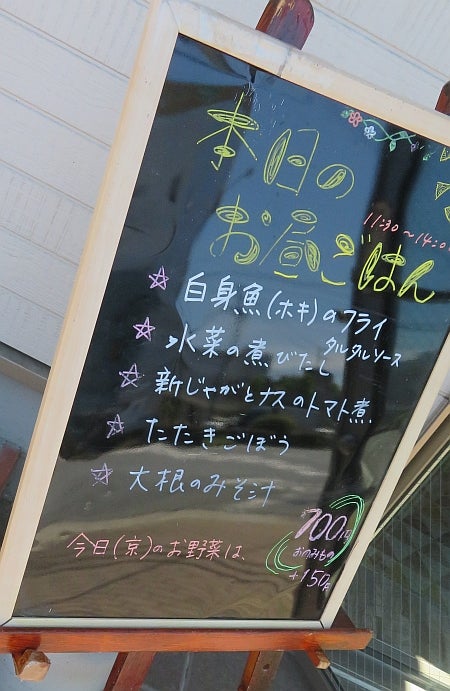 本日の
お昼ごはん
11:30～14:00
☆白身魚(ホキ)のフライ
タルタルソース
☆水菜の煮びたし
☆新じゃがとナスのトマト煮
☆たたきごぼう
☆大根のみそ汁
700円
おのみもの
+150円
今日(京)のお野菜は